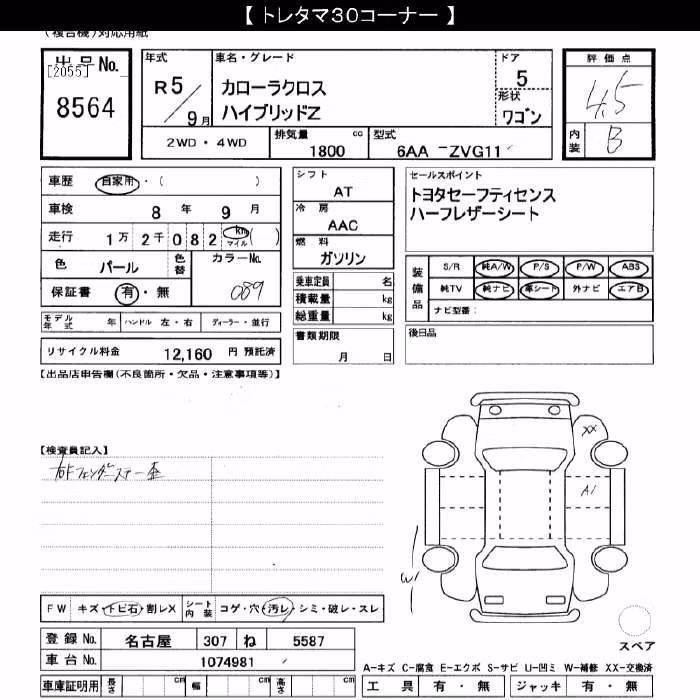 【 トレタマ30コーナー 】
(複合機)対応用紙
出品No.
[2055]
8564
年式
R 5/9月
車名・グレード
カローラクロス
ハイブリッドZ
ドア
5
形状
ワゴン
評価点
4.5
内装
B
2WD・4WD
排気量 cc
1800
型式
6AA -ZVG11
車歴 自家用・( )
車検 8年 9月
走行 1万 2千 0 8 2 km マイル ( )
色 パール 色替
カラーNo.
089
保証書 有・無
モデル年式 年 ハンドル 左・右 ディーラー・並行
リサイクル料金 12,160 円 預託済
シフト
AT
冷房
AAC
燃料
ガソリン
乗車定員 名
積載量 kg
総重量 kg
書類期限
月 日
セールスポイント
トヨタセーフティセンス
ハーフレザーシート
装備品
S/R 純A/W P/S P/W ABS
純TV 純ナビ 革シート 外ナビ エアB
ナビ型番:
後日品
【出品店申告欄(不良箇所・欠品・注意事項等)】
【検査員記入】
右Fフェンダーステー歪
XX
A1
W1
FW キズ・トビ石・割レX シート内装 コゲ・穴・汚レ・シミ・破レ・スレ
登録No. 名古屋 307 ね 5587
車台No. 1074981
車庫証明用 長さ cm 幅 cm 高さ cm
スペア
A-キズ C-腐食 E-エクボ S-サビ U-凹ミ W-補修 XX-交換済
工具 有・無 ジャッキ 有・無